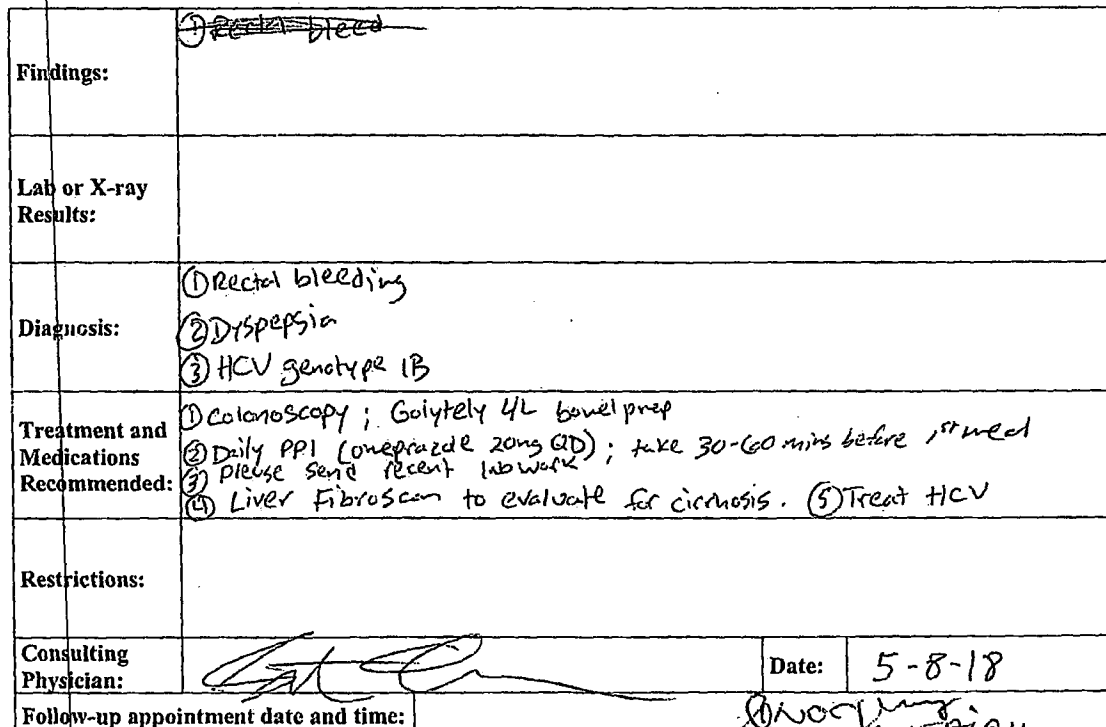 ① Rectal bleed
Findings:
Lab or X-ray
Results:
① Rectal bleeding
Diagnosis:
② Dyspepsia
③ HCV genotype 1B
Treatment and
Medications
Recommended:
① Colonoscopy ; Golytely 4L bowel prep
② Daily PPI (omeprazole 20mg QD) ; take 30-60 mins before 1st meal
③ please send recent labwork
④ Liver Fibroscan to evaluate for cirrhosis. ⑤ Treat HCV
Restrictions:
Consulting
Physician:
Date: 5-8-18
Follow-up appointment date and time: